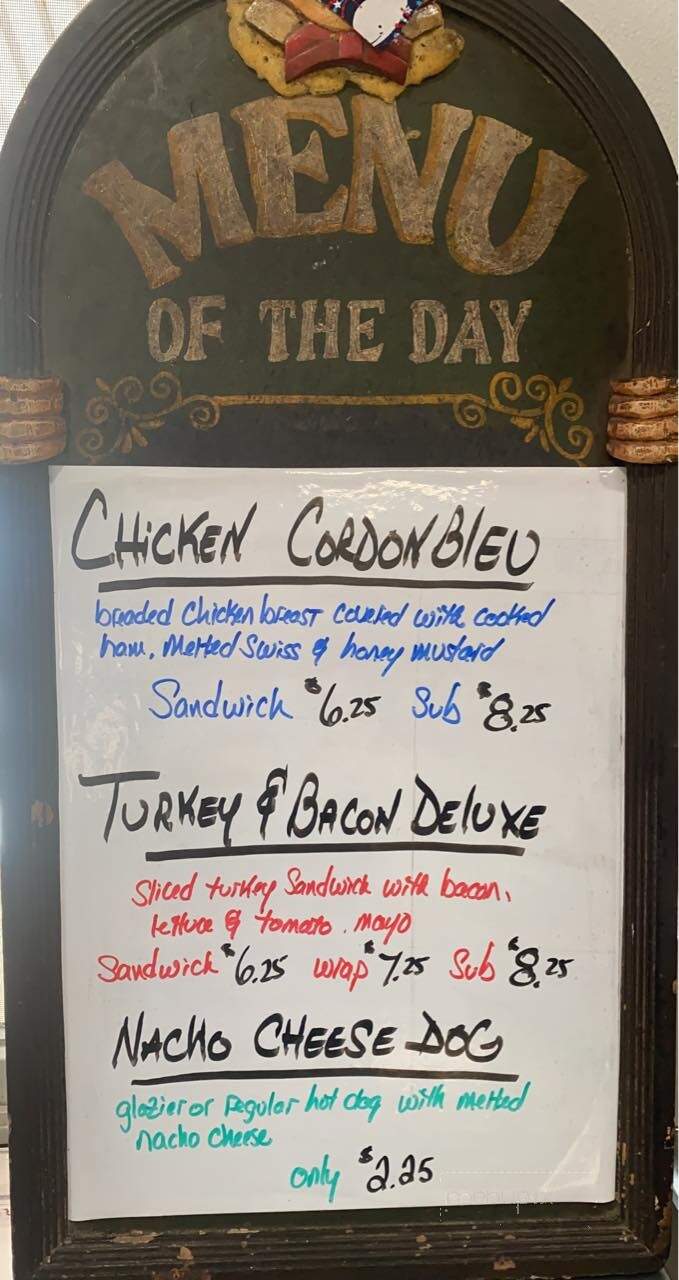 MENU
OF THE DAY
CHiCKEN CORDON BlEU
breaded Chicken breast covered with cooked
ham, Melted Swiss & honey mustard
Sandwich $6.25 Sub $8.25
TURKEY & BACON DELUXE
Sliced turkey Sandwich with bacon,
lettuce & tomato. mayo
Sandwich $6.25 wrap $7.25 Sub $8.25
NACHO CHEESE DOG
glazier or regular hot dog with melted
nacho cheese
only $2.25